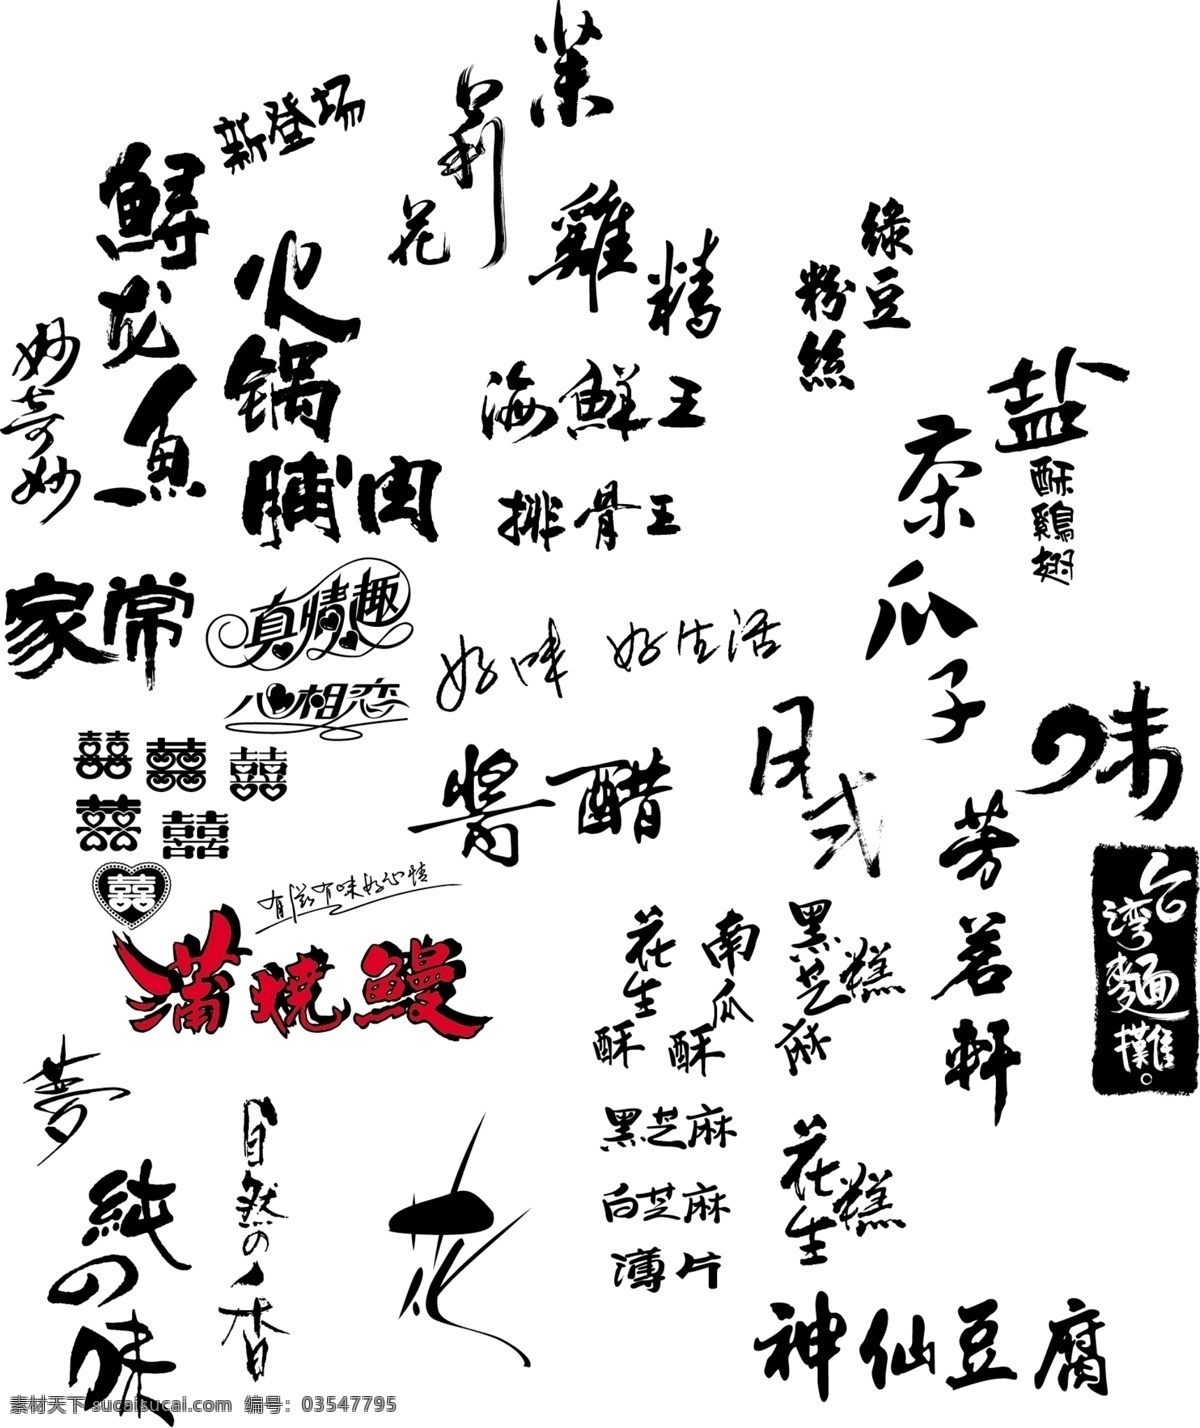 新登场
茉
莉
花
鲟龙鱼
火锅
脯肉
妙奇妙
雞精
海鮮王
排骨王
綠豆
粉絲
盐
酥鷄翅
茶瓜子
家常
真情趣
心相恋
好味 好生活
囍 囍 囍
囍 囍
囍
醬醋
日式
味
芳茗轩
台湾麵攤。
有滋有味好心情
蒲燒鰻
花生酥
南瓜酥
黑芝麻糕
夢
純の味
自然の香
花
黑芝麻
白芝麻
薄片
花生糕
神仙豆腐
素材天下 sucaisucai.com 编号：03547795